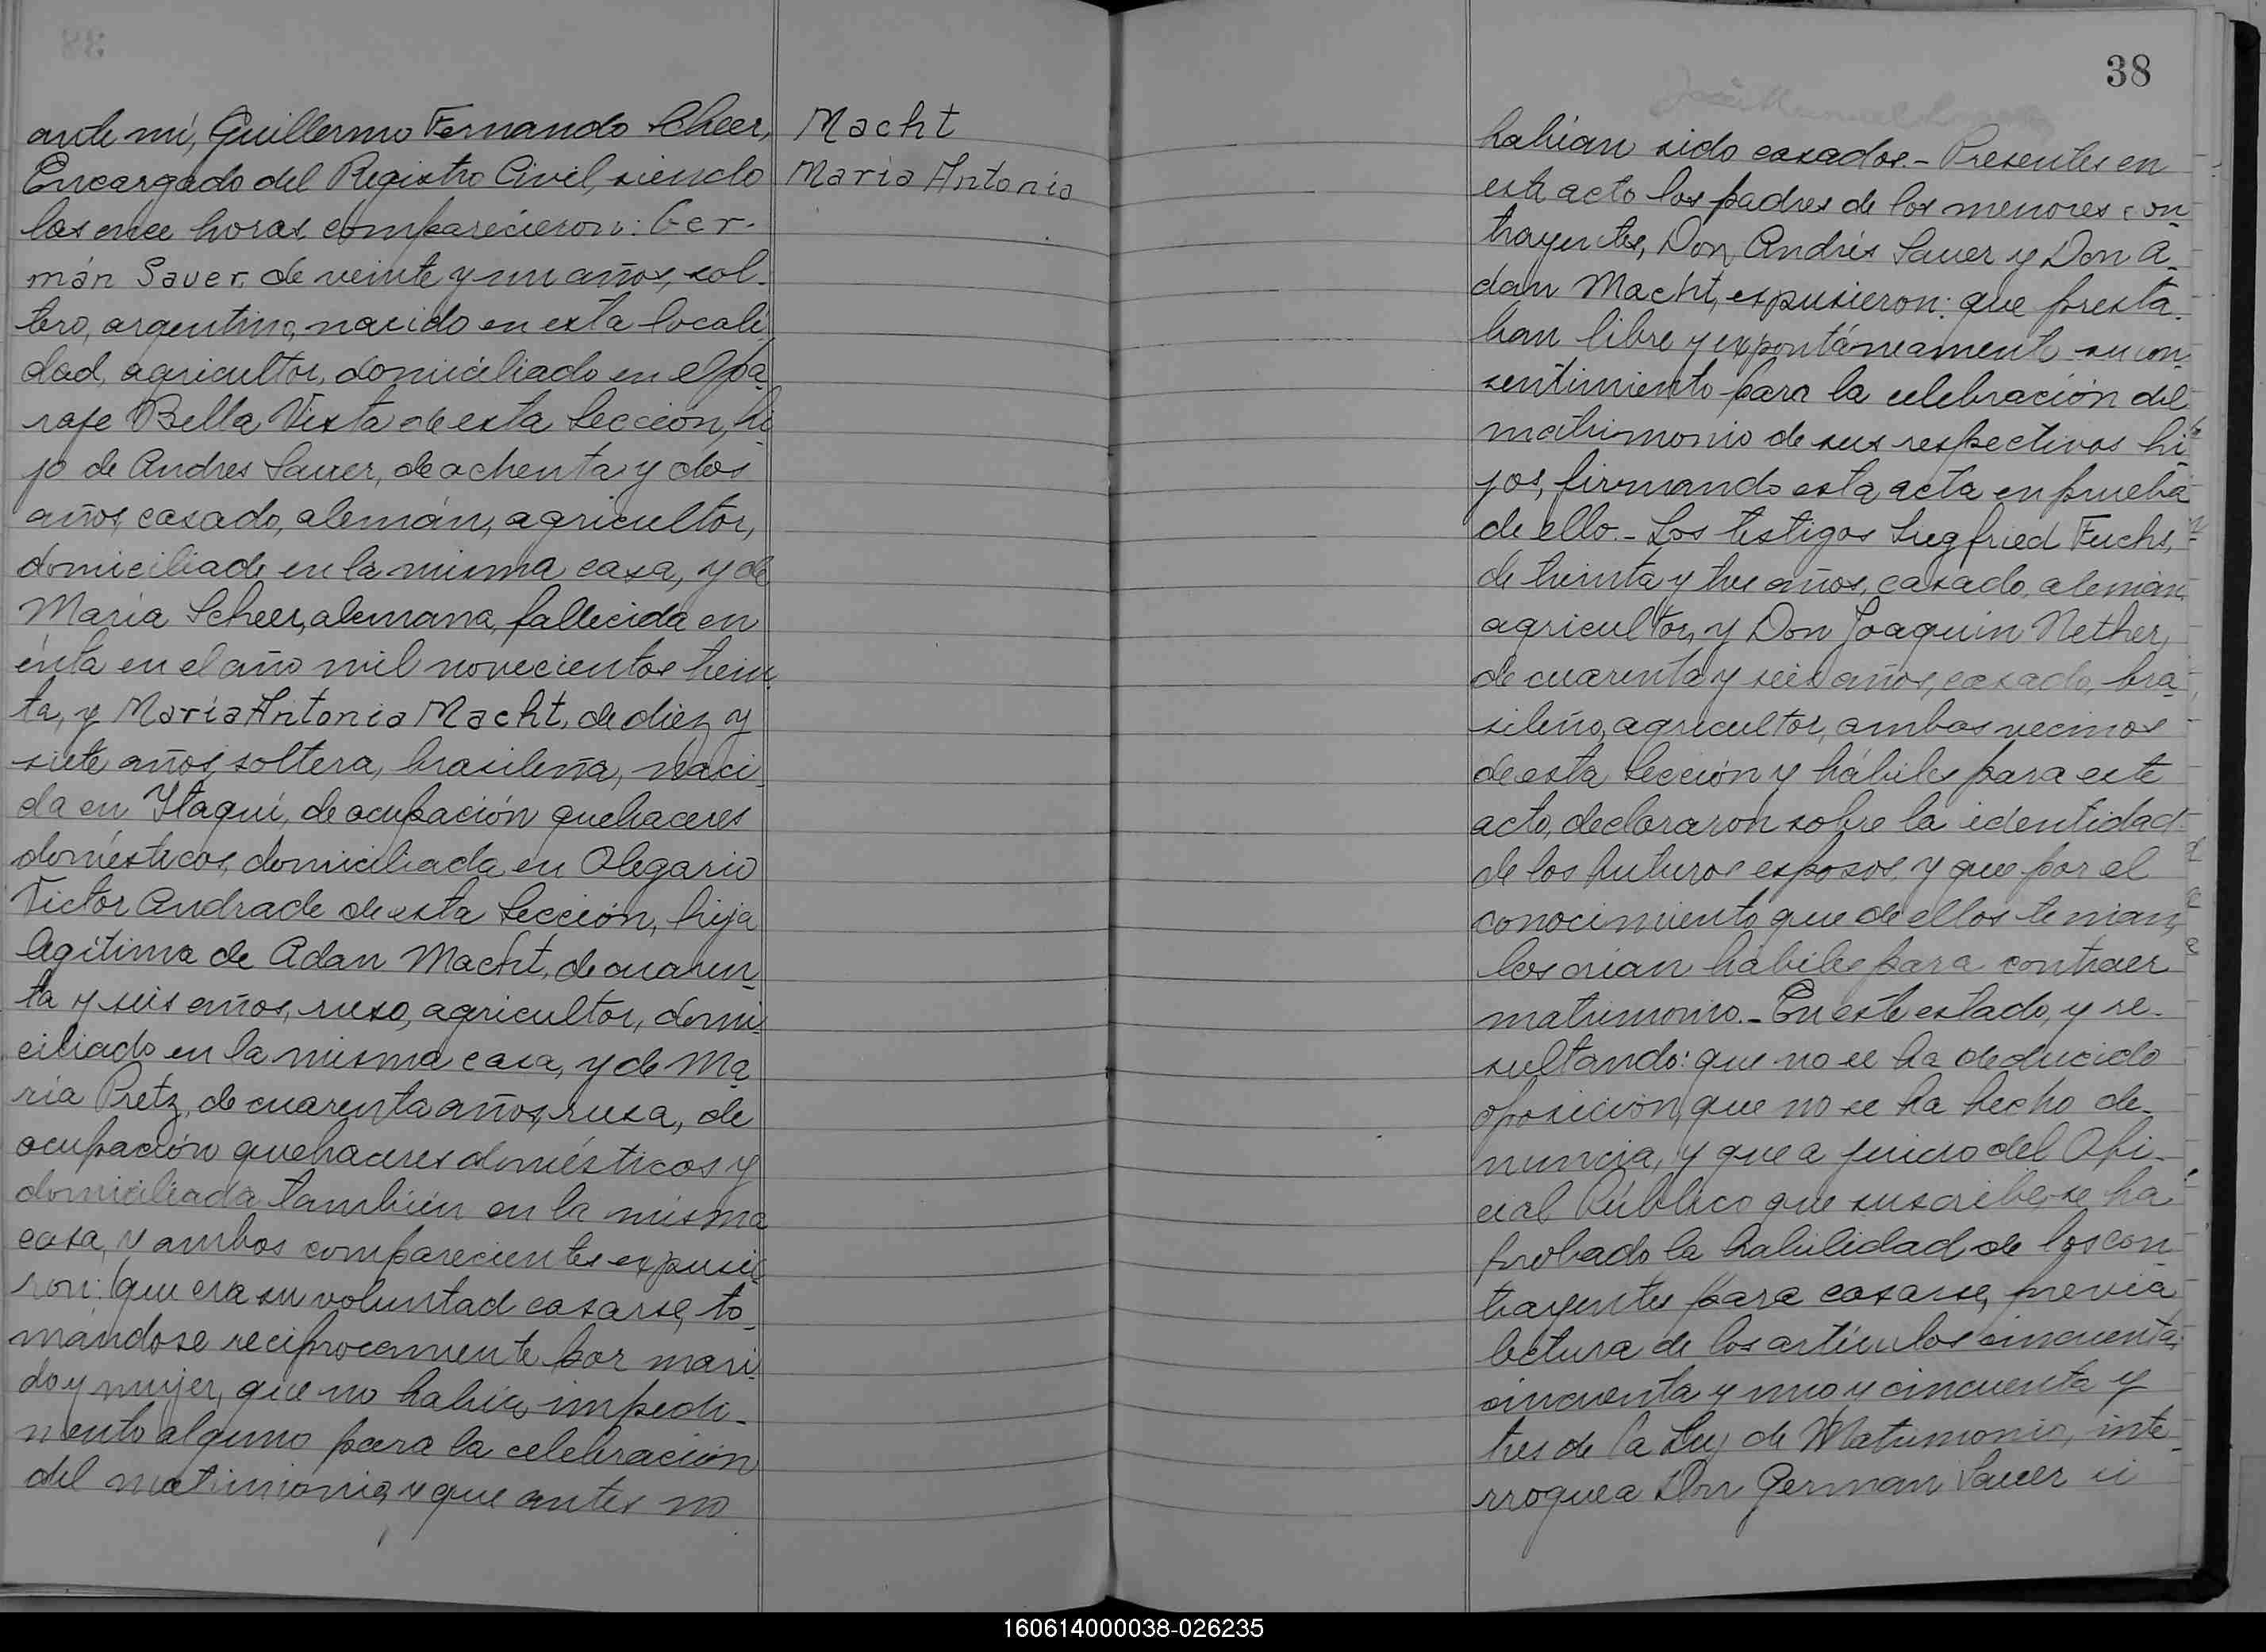 ante mí, Guillermo Fernando Scheer,
Encargado del Registro Civil, siendo
las once horas comparecieron: Ger-
mán Sauer, de veinte y un años, sol-
tero, argentino, nacido en esta locali
dad, agricultor, domiciliado en el pa
raje Bella Vista de esta Sección, hi
jo de Andres Sauer, de ochenta y dos
años, casado, alemán, agricultor,
domiciliado en la misma casa, y de
Maria Scheer, alemana, fallecida en
ésta en el año mil novecientos trein
ta, y Maria Antonia Macht, de diez y
siete años, soltera, brasileña, naci
da en Itaquí, de ocupación quehaceres
domésticos, domiciliada en Olegario
Victor Andrade de esta Sección, hija
legítima de Adan Macht, de cuaren
ta y seis años, ruso, agricultor, domi
ciliado en la misma casa, y de Ma
ria Pretz, de cuarenta años, rusa, de
ocupación quehaceres domésticos y
domiciliada también en la misma
casa, y ambos comparecientes expusie
ron: que era su voluntad casarse, to
mándose reciprocamente por mari
do y mujer, que no había impedi-
mento alguno para la celebración
del matrimonio, y que antes no
Macht
Maria Antonia
38
habían sido casados.- Presentes en
este acto los padres de los menores con
trayentes, Don Andrés Sauer y Don A-
dan Macht, expusieron: que presta-
ban libre y expontáneamente su con
sentimiento para la celebración del
matrimonio de sus respectivos hi
jos, firmando esta acta en prueba
de ello.- Los testigos Siegfried Fuchs,
de treinta y tres años, casado, alemán,
agricultor, y Don Joaquin Nether,
de cuarenta y seis años, casado, bra
sileño, agricultor, ambos vecinos
de esta Sección y hábiles para este
acto, declararon sobre la identidad
de los futuros esposos, y que por el
conocimiento que de ellos tenian,
los crian hábiles para contraer
matrimonio.- En este estado, y re-
sultando: que no se ha deducido
oposición, que no se ha hecho de-
nuncia, y que a juicio del Ofi-
cial Público que suscribe, se ha
probado la habilidad de los con
trayentes para casarse, previa
lectura de los artículos cincuenta,
cincuenta y uno y cincuenta y
tres de la Ley de Matrimonio, inte
rrogue a Don German Sauer si
160614000038-026235